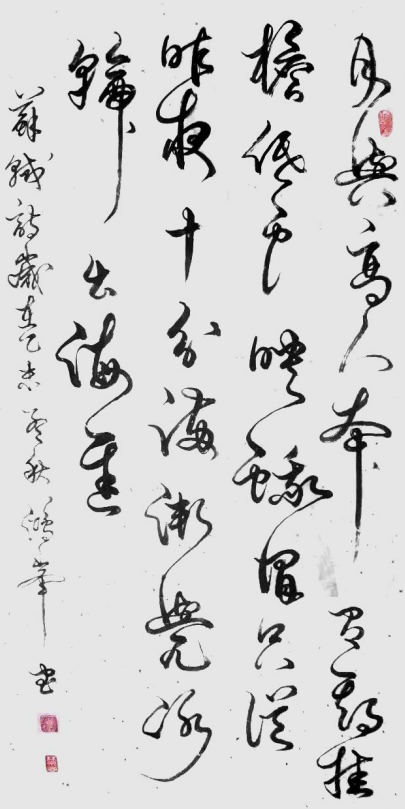 月與高人本有期挂
檐低戶映蛾眉只從
昨夜十分滿漸覺冰
輪出海遲
蘇軾詩歲在乙未孟秋鴻峯書